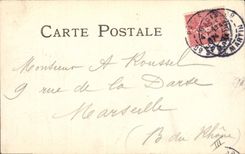 CARTE POSTALE
Monsieur A Roussel
9 rue de la Darse
Marseille
B du Rhône